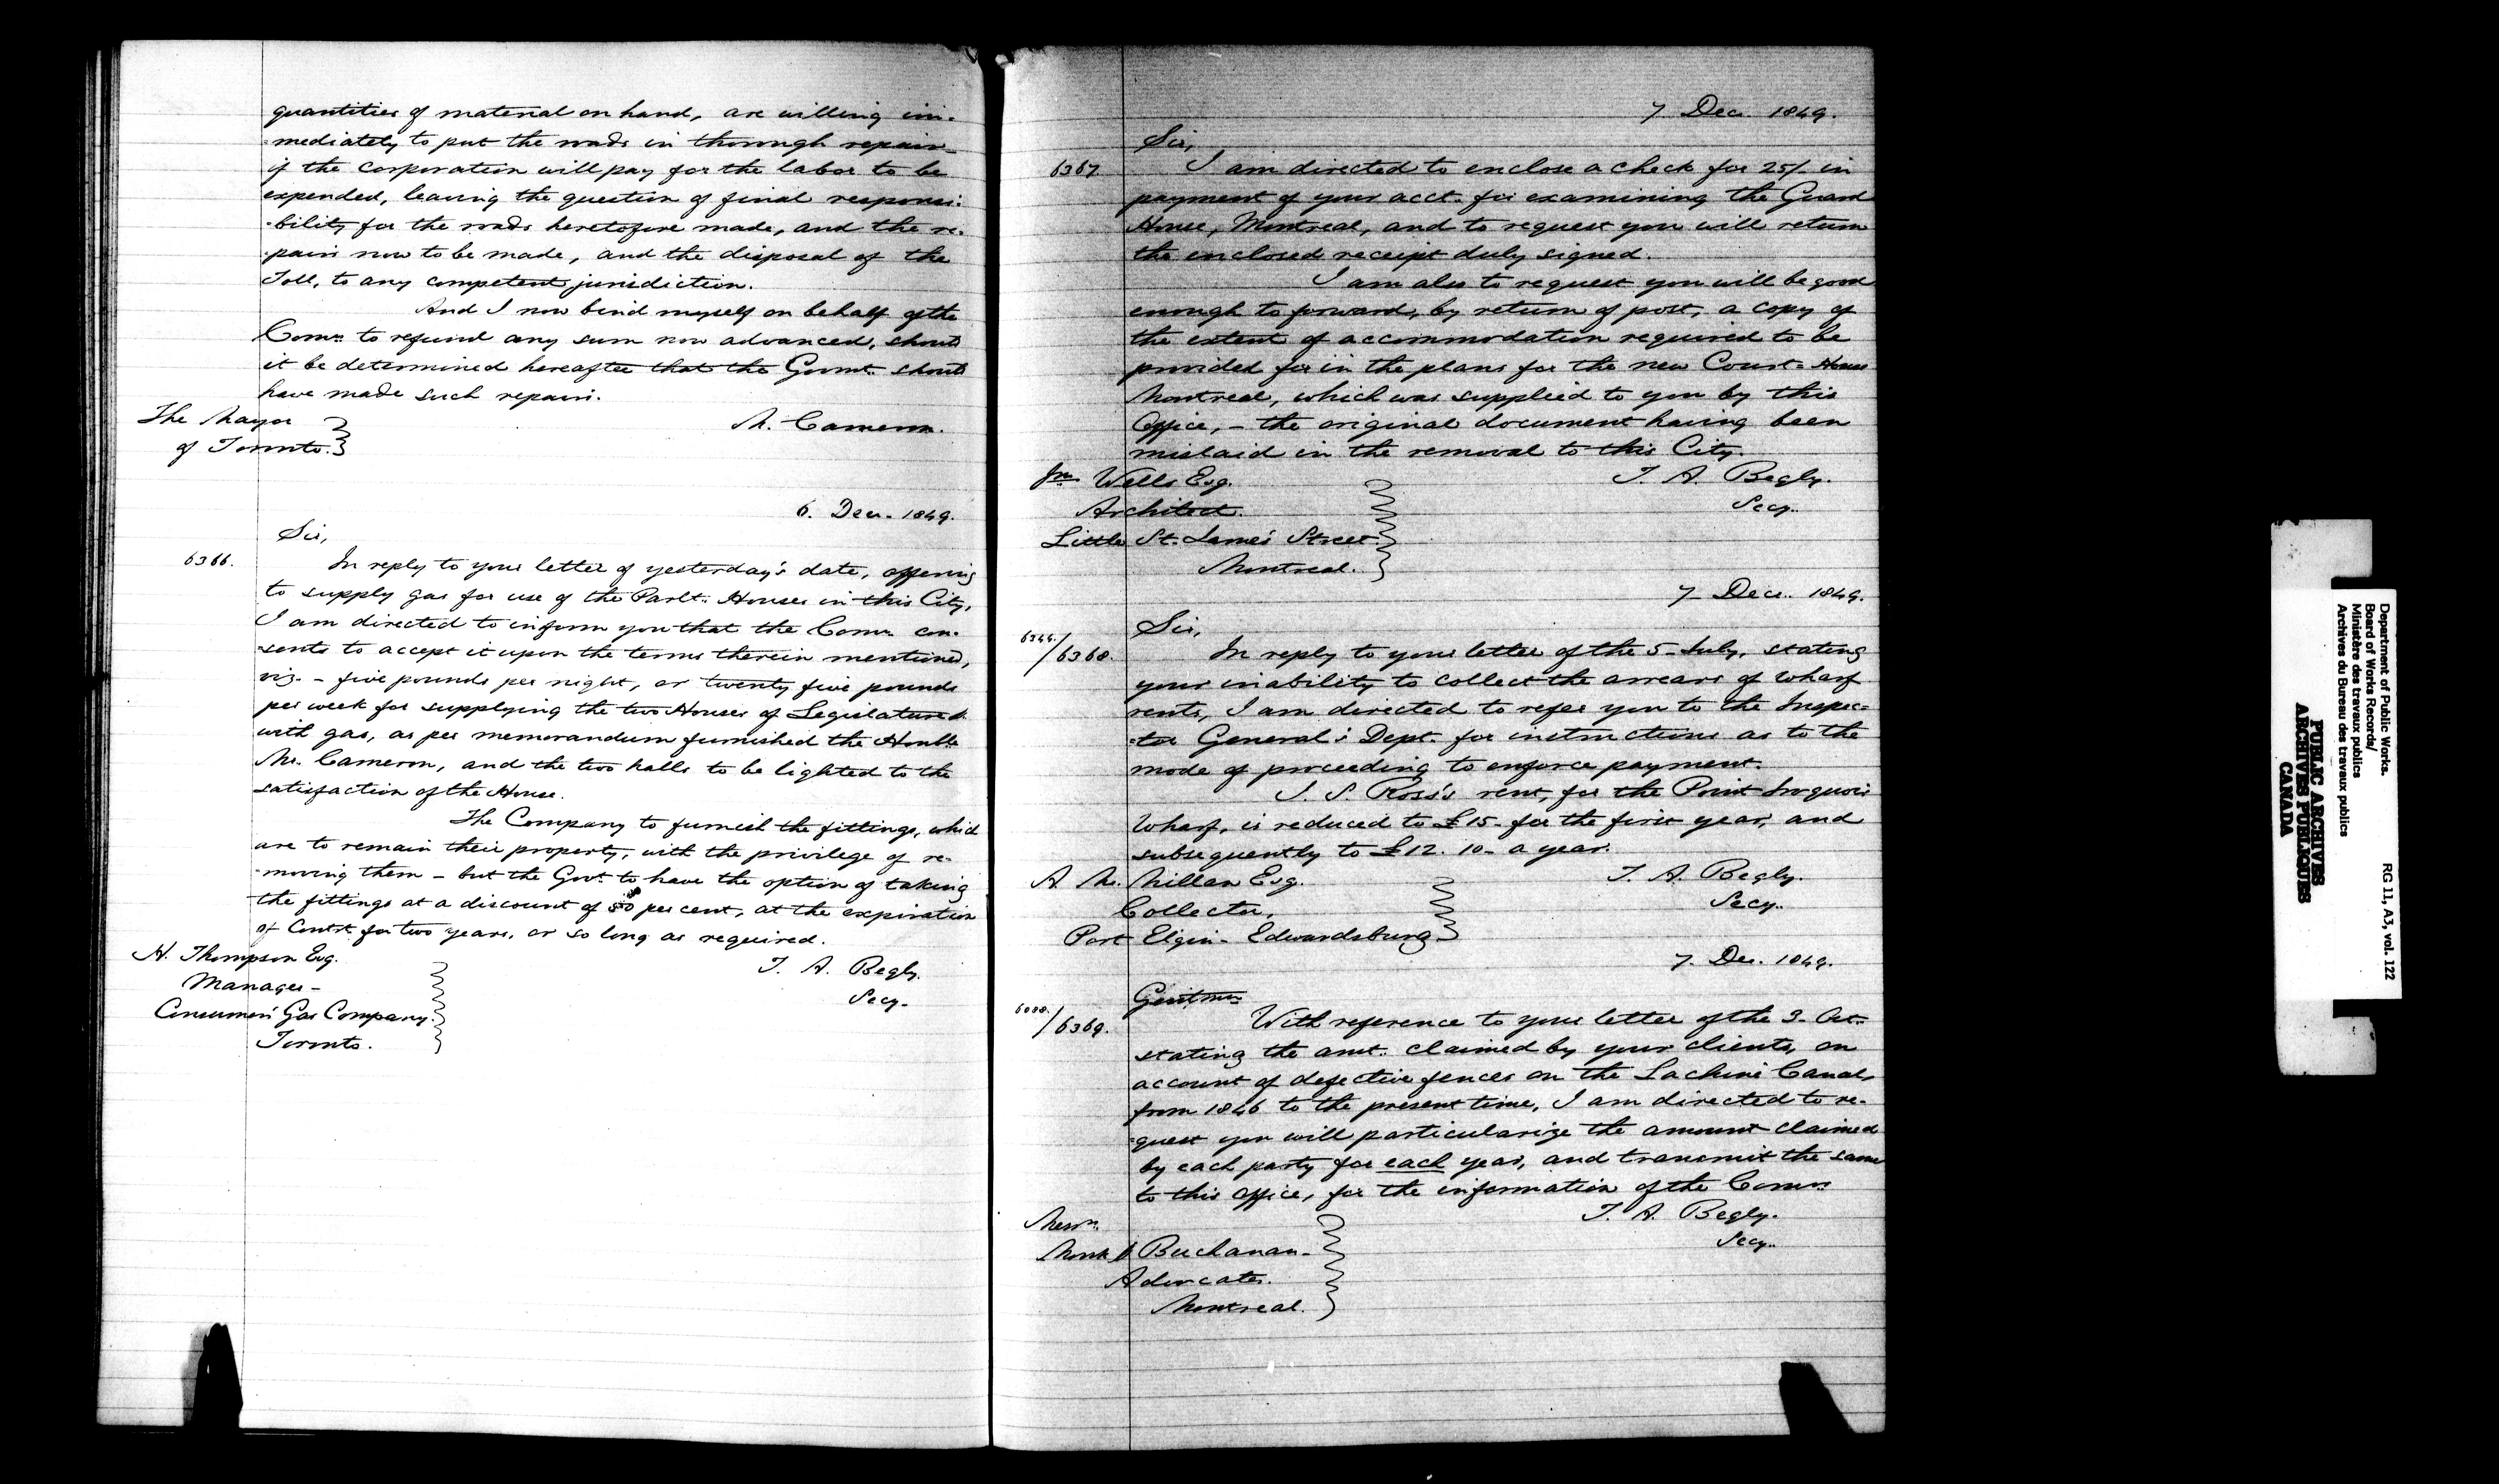 quantities of material on hand, are willing im-
-mediately to put the roads in thorough repair
if the Corporation will pay for the labor to be
expended, leaving the question of final responsi-
-bility for the roads heretofore made, and the re-
-pairs now to be made, and the disposal of the
Toll, to any competent jurisdiction.
And I now bind myself on behalf of the
Comrs. to refund any sum now advanced, should
it be determined hereafter that the Govmt. should
have made such repairs.
The Mayor
of Toronto.
M. Cameron.
6. Decr. 1849.
Sir,
6366.
In reply to your letter of yesterday's date, offering
to supply gas for use of the Parlt. Houses in this City,
I am directed to inform you that the Comrs. con-
-sents to accept it upon the terms therein mentioned,
viz. - five pounds per night, or twenty five pounds
per week for supplying the two Houses of Legislature
with gas, as per memorandum furnished the Honble.
Mr. Cameron, and the two halls to be lighted to the
satisfaction of the House.
The Company to furnish the fittings, which
are to remain their property, with the privilege of re-
-moving them - but the Govt. to have the option of taking
the fittings at a discount of 50 per cent, at the expiration
of Contrt. for two years, or so long as required.
H. Thompson Esq.
Manager -
Consumers' Gas Company.
Toronto.
T. A. Begly.
Secy.
7 Dec. 1849.
Sir,
6367
I am directed to enclose a check for 25/- in
payment of your acct. for examining the Guard
House, Montreal, and to request you will return
the enclosed receipt duly signed.
I am also to request you will be good
enough to forward, by return of post, a copy of
the extent of accommodation required to be
provided for in the plans for the new Court-House
Montreal, which was supplied to you by this
Office, - the original document having been
mislaid in the removal to this City.
Jno. Wells Esq.
Architect.
Little St. James' Street.
Montreal.
T. A. Begly.
Secy.
7 Decr. 1849.
Sir,
6344./6368.
In reply to your letter of the 5 July, stating
your inability to collect the arrears of wharf
rents, I am directed to refer you to the Inspec-
-tor General's Dept. for instructions as to the
mode of proceeding to enforce payment.
J. S. Ross's rent, for the Point Iroquois
Wharf, is reduced to £15- for the first year, and
subsequently to £12. 10- a year.
A. Mc. Millan Esq.
Collector,
Port Elgin - Edwardsburg
T. A. Begly.
Secy.
7. Dec. 1849.
Gentmn
6038./6369.
With reference to your letter of the 3. Oct.
stating the amt. claimed by your clients, on
account of defective fences on the Lachine Canal,
from 1846 to the present time, I am directed to re-
-quest you will particularize the amount claimed
by each party for each year, and transmit the same
to this Office, for the information of the Comrs.
Messrs.
Monk & Buchanan.
Advocates.
Montreal.
T. A. Begly.
Secy.
Department of Public Works.
Board of Works Records/
Ministère des travaux publics
Archives du Bureau des travaux publics
RG 11, A3, vol. 122
PUBLIC ARCHIVES
ARCHIVES PUBLIQUES
CANADA